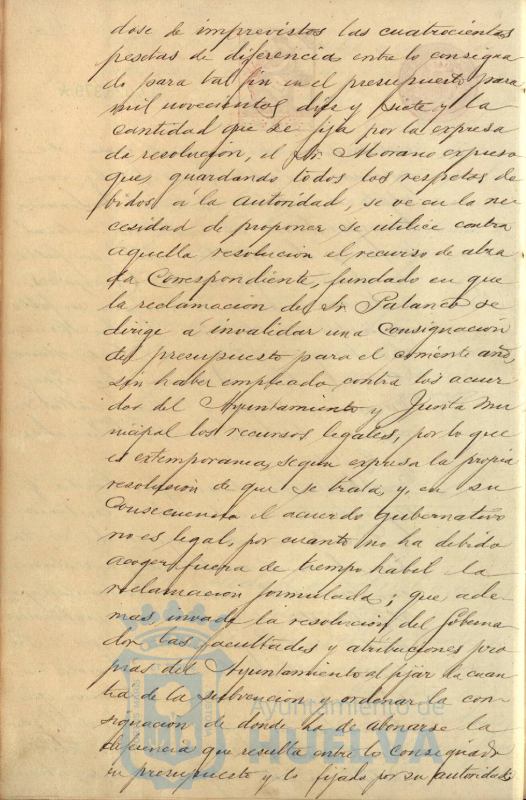 dose de imprevistos las cuatrocientas
pesetas de diferencia entre lo consigna
do para tal fin en el presupuesto para
mil novecientos diez y siete y la
cantidad que se fija por la expresa
da resolución, el Sr. Morano expuso
que, guardando todos los respetos de
bidos á la autoridad, se ve en la ne
cesidad de proponer se utilice contra
aquella resolución el recurso de alza
da correspondiente, fundado en que
la reclamación del Sr Palanco se
dirige á invalidar una consignación
del presupuesto para el corriente año,
sin haber empleado contra los acuer
dos del Ayuntamiento y Junta Mu
nicipal los recursos legales, por lo que
es extemporanea, segun expresa la propia
resolución de que se trata, y, en su
consecuencia el acuerdo gubernativo
no es legal, por cuanto no ha debido
acoger fuera de tiempo hábil la
reclamación formulada; que ade
mas, invade la resolución del Goberna
dor las facultades y atribuciones pro
pias del Ayuntamiento al fijar la cuan
tia de la subvencion y ordenar la con
signacion de donde ha de abonarse la
diferencia que resulta entre lo consignado
en presupuesto y lo fijado por su autoridad;
Ayuntamiento de
HUELVA